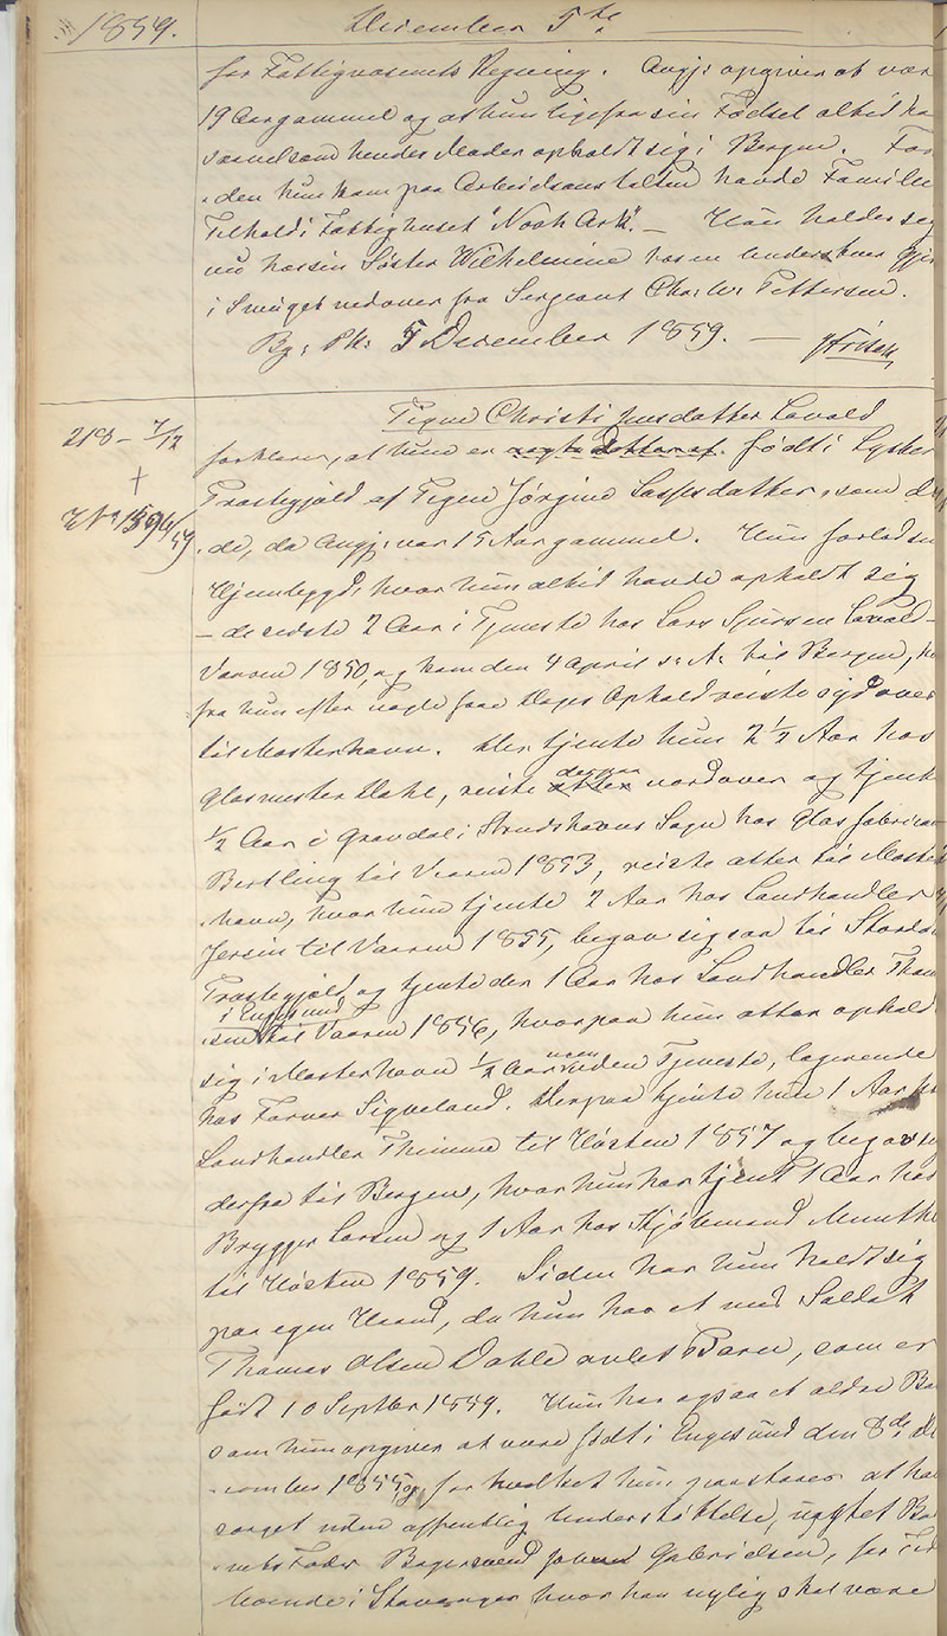 1859. December 5te
for Fattigvæsenets Regning. Angj: opgiver at vær
19 Aar gammel og at hun ligefra sin Fødsel altid ha
saavelsom hendes Moder opholdt sig i Bergen. For
-den hun kom paa Arbeidsanstalten havde Familie
Tilhold i Fattighuset "Noah Ark". - Hun holder sig
nu hos sin Søster Wilhelmine hos en
i Smuget nedover fra Sergeant Charles Pettersen.
Bg: Pk: 5 December 1859. —
218 - 7/12
Pigen Christi Jensdatter Lavold
forklarer, at hun er uægte Datter af født i Lyster
+
Præstegjæld af Pigen Jørgine Lassesdatter, som d
-de, da Angj: var 15 Aar gammel. Hun forlod sin
Hjembygd, hvor hun altid havde opholdt sig
- de sidste 2 Aar i Tjeneste hos Lars Sjursen Lavold -
Vaaren 1850, og kom den 4 April s: A: til Bergen, hv
fra hun efter nogle faae Dages Ophold reiste sydover
til Mosterhavn. Der tjente hun 2 1/2 Aar hos
Glasmester Dahl, reiste atter derpaa nordover og tjente
1/2 Aar i Gravdal i Strudshavns Sogn hos Glasfabrica
Bertling til Vaaren 1853, reiste atter til Moster
-havn, hvor hun tjente 2 Aar hos Landhandler
Jersin til Vaaren 1855, begav sig saa til Stordø
Præstegjæld og tjente der 1 Aar hos Landhandler Thom
i Engesund
-sen til Vaaren 1856, hvorpaa hun atter ophold
sig i Mosterhavn 1/2 Aar uden Tjeneste, logerende
hos Farver Siqveland. Derpaa tjente hun 1 Aar ho
Landhandler Thimme til Høsten 1857 og begav si
derfra til Bergen, hvor hun har tjent 1 Aar hos
Brygger Larsen og 1 Aar hos Kjøbmand Munthe
til Høsten 1859. Siden har hun holdt sig
paa egen Haand, da hun har et med Soldat
Thomas Olsen Dahle avlet Barn, som er
født 10 Septbr 1859. Hun har ogsaa et ældre Ba
som hun opgiver at være født i Engesund den 8de De
-cember 1855, og for hvilket hun paastaaer at ha
sørget uden offentlig Understøttelse, uagtet Ba
-nets Fader Bagersvend Gabrielsen, for Tid
boende i Stavanger hvor han nylig skal være